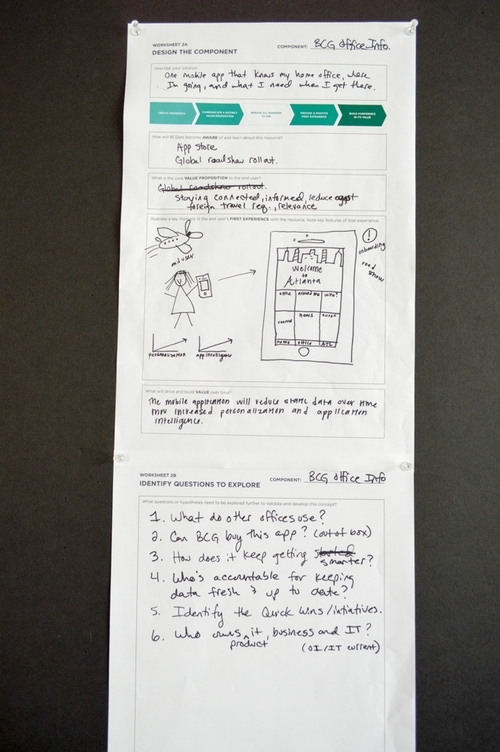 WORKSHEET 2A
DESIGN THE COMPONENT
COMPONENT: BCG Office Info.
Describe your solution:
One mobile app that knows my home office, where
I'm going, and what I need when I get there.
How will BCGers become AWARE of and learn about this resource?
App store
Global roadshow rollout.
What is the core VALUE PROPOSITION to the end user?
Global roadshow rollout.
Staying connected, informed, reduce
foreign travel req., relevance
Illustrate a key moment in the end user's FIRST EXPERIENCE with the resource. Note key features of that experience.
Welcome
to
Atlanta
news
home office ATL
onboarding
road
show
personalization
app intelligence
What will drive and build VALUE over time?
The mobile application will reduce static data over time
thru increased personalization and application
intelligence.
WORKSHEET 2B
IDENTIFY QUESTIONS TO EXPLORE
COMPONENT: BCG Office Info
What questions or hypotheses need to be explored further to validate and develop this concept?
1. What do other offices use?
2. Can BCG buy this app? (out of box)
3. How does it keep getting smarter?
4. Who's accountable for keeping
data fresh & up to date?
5. Identify the Quick Wins/intiatives.
6. Who owns it, business and IT?
product
(OI/IT current)